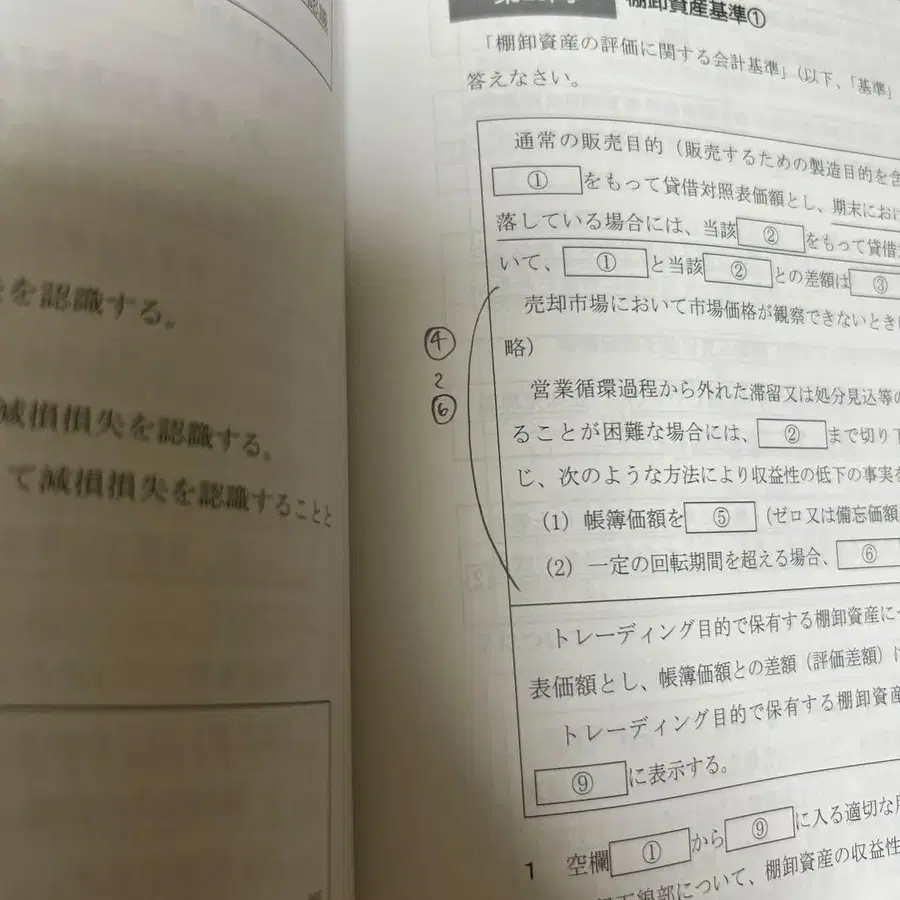 を認識する。
減損損失を認識する。
て減損損失を認識することと
棚卸資産基準①
「棚卸資産の評価に関する会計基準」(以下、「基準」
答えなさい。
通常の販売目的(販売するための製造目的を含
①をもって貸借対照表価額とし、期末にお
落している場合には、当該②をもって貸借
いて、①と当該②との差額は③
売却市場において市場価格が観察できないとき
略)
営業循環過程から外れた滞留又は処分見込等の
ることが困難な場合には、②まで切り
じ、次のような方法により収益性の低下の事実を
(1) 帳簿価額を⑤(ゼロ又は備忘価額
(2) 一定の回転期間を超える場合、⑥
④
2
⑥
トレーディング目的で保有する棚卸資産に
表価額とし、帳簿価額との差額(評価差額)
トレーディング目的で保有する棚卸資産
⑨に表示する。
1 空欄①から⑨に入る適切な
下線部について、棚卸資産の収益性